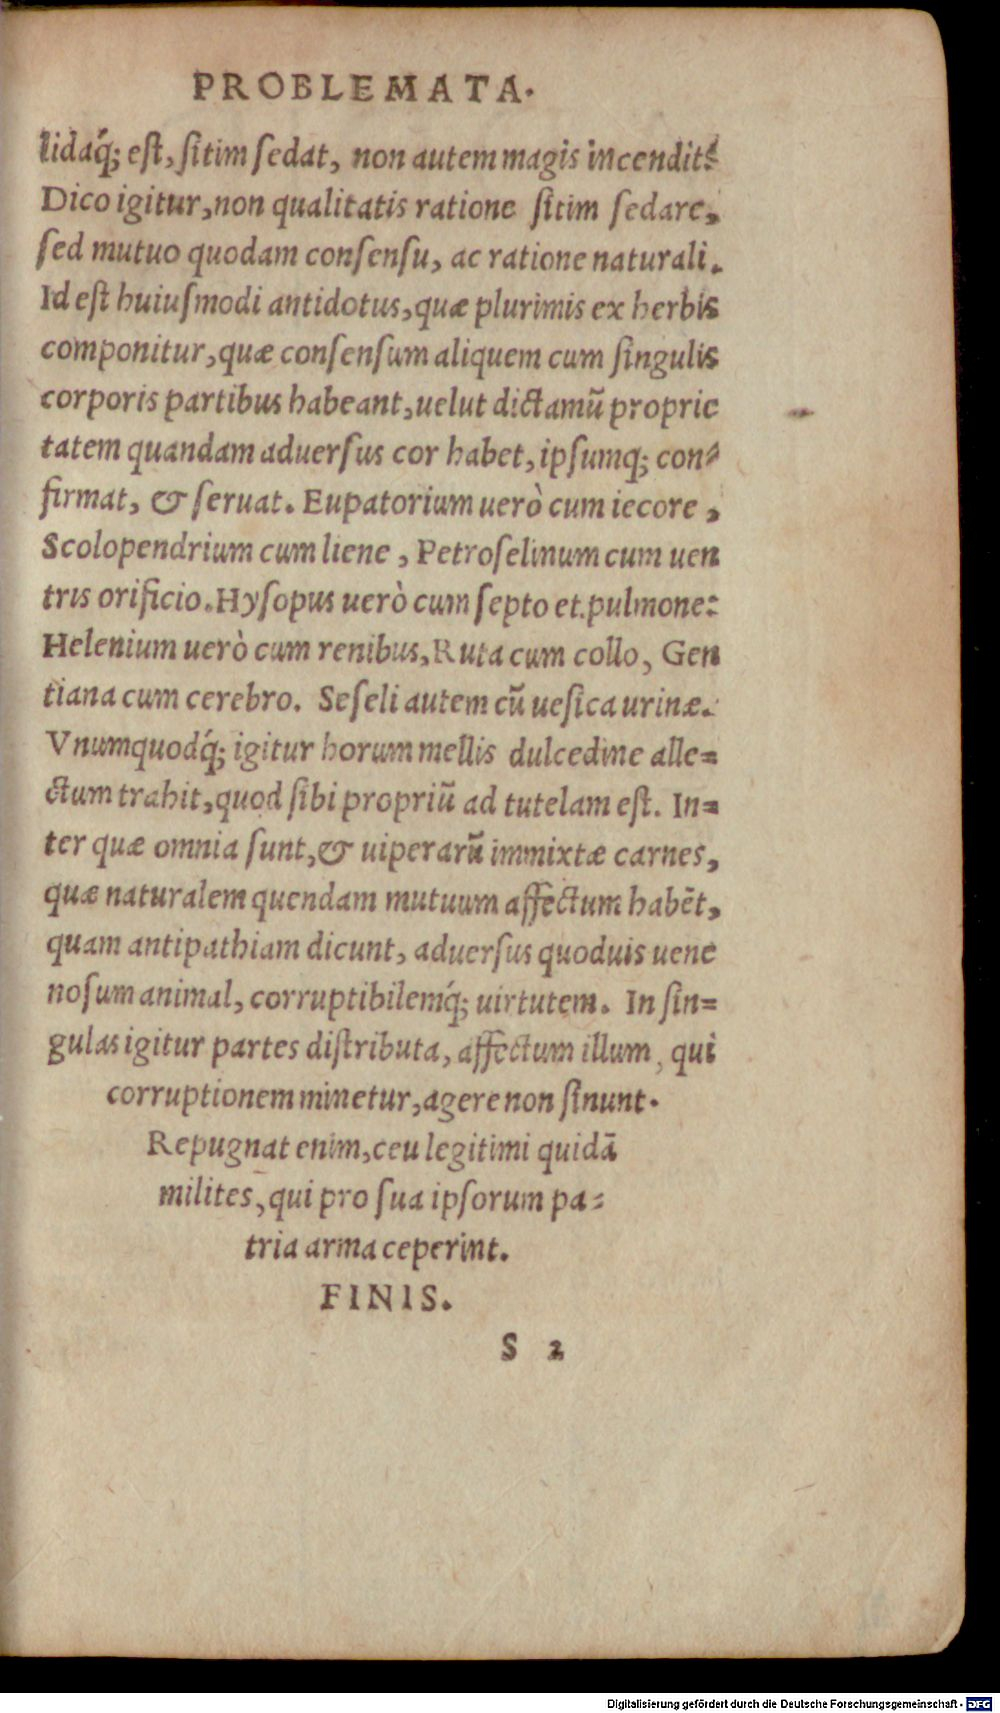 PROBLEMATA.
lidaq́; eſt, ſitim ſedat, non autem magis incendit?
Dico igitur, non qualitatis ratione ſitim ſedare,
ſed mutuo quodam conſenſu, ac ratione naturali.
Id eſt huiuſmodi antidotus, quæ plurimis ex herbis
componitur, quæ conſenſum aliquem cum ſingulis
corporis partibus habeant, uelut dictamū proprie
tatem quandam aduerſus cor habet, ipſumq; con⸗
firmat, & ſeruat. Eupatorium uerò cum iecore,
Scolopendrium cum liene, Petroſelinum cum uen
tris orificio. Hyſopus uerò cum ſepto et pulmone:
Helenium uerò cum renibus, Ruta cum collo, Gen
tiana cum cerebro. Seſeli autem cū ueſica urinæ.
Vnumquodq́; igitur horum mellis dulcedine alle⸗
ctum trahit, quod ſibi propriū ad tutelam eſt. In⸗
ter quæ omnia ſunt, & uiperarū immixtæ carnes,
quæ naturalem quendam mutuum affectum habēt,
quam antipathiam dicunt, aduerſus quoduis uene
noſum animal, corruptibilemq́; uirtutem. In ſin⸗
gulas igitur partes diſtributa, affectum illum, qui
corruptionem minetur, agere non ſinunt.
Repugnat enim, ceu legitimi quidā
milites, qui pro ſua ipſorum pa⸗
tria arma ceperint.
FINIS.
S 2
Digitalisierung gefördert durch die Deutsche Forschungsgemeinschaft - DFG